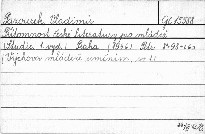 Pazourek, Vladimír GC 15888
Přítomnost české literatury pro mládež
(Studie. 1. vyd.) Praha (1946) Petr 8° 93-
(Výchova mládeže uměním, sv. 1)